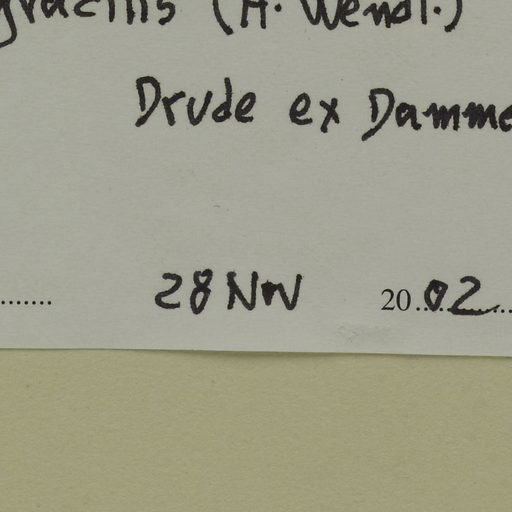 gracilis (H. Wendl.)
Drude ex Damme
28 Nov 2002